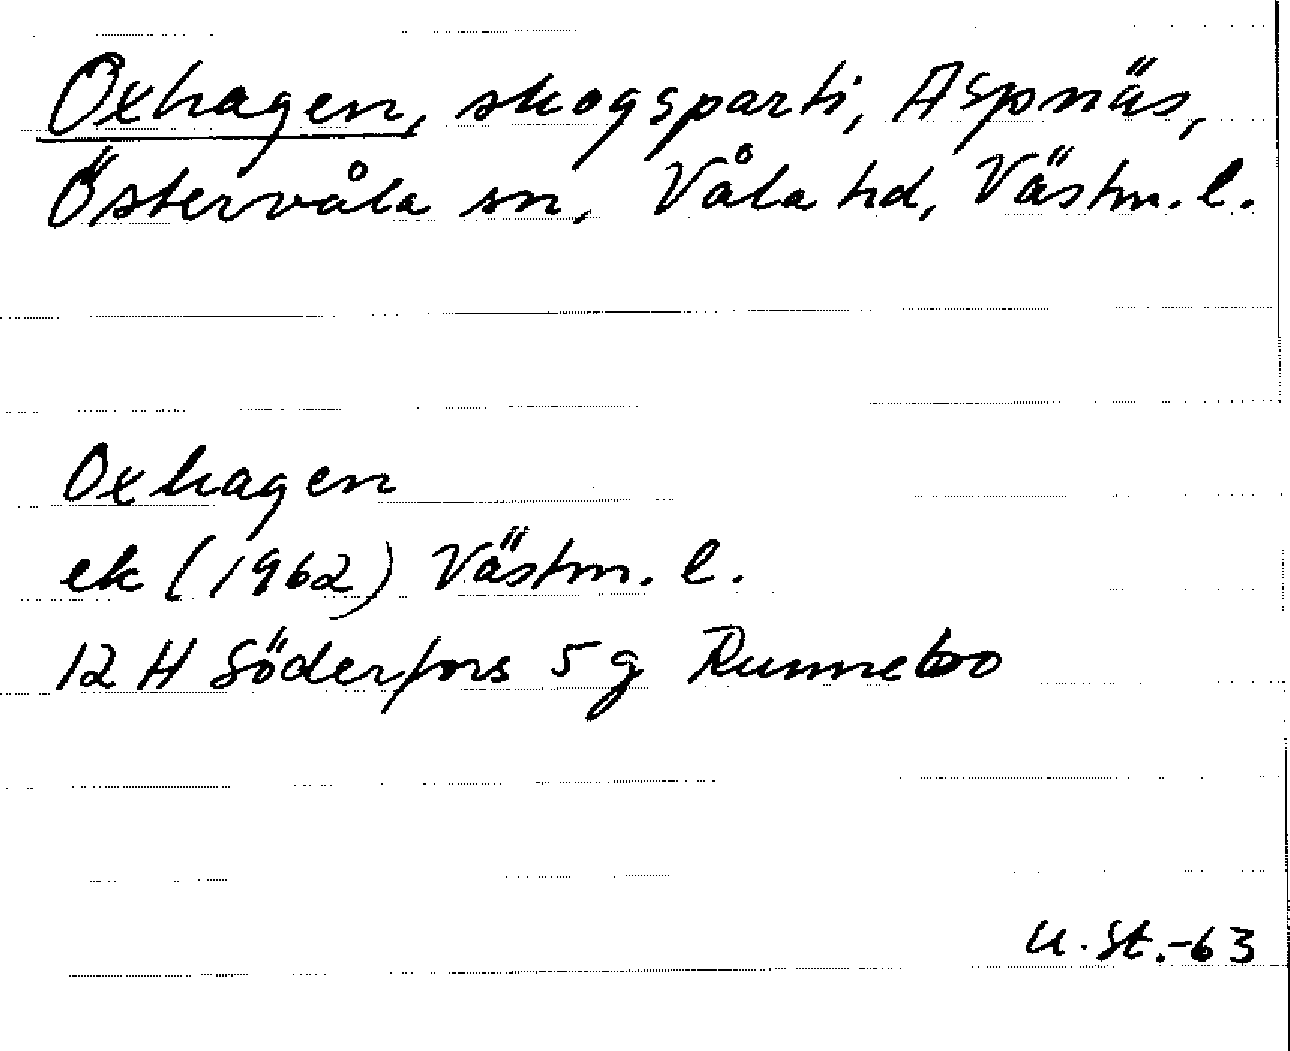 Oxhagen, skogsparti, Aspnäs,
Östervåla sn, Våla hd, Västm. l.
Oxhagen
ek (1962) Västm. l.
12 H Söderfors 5 g Runnebo
U. St. -63